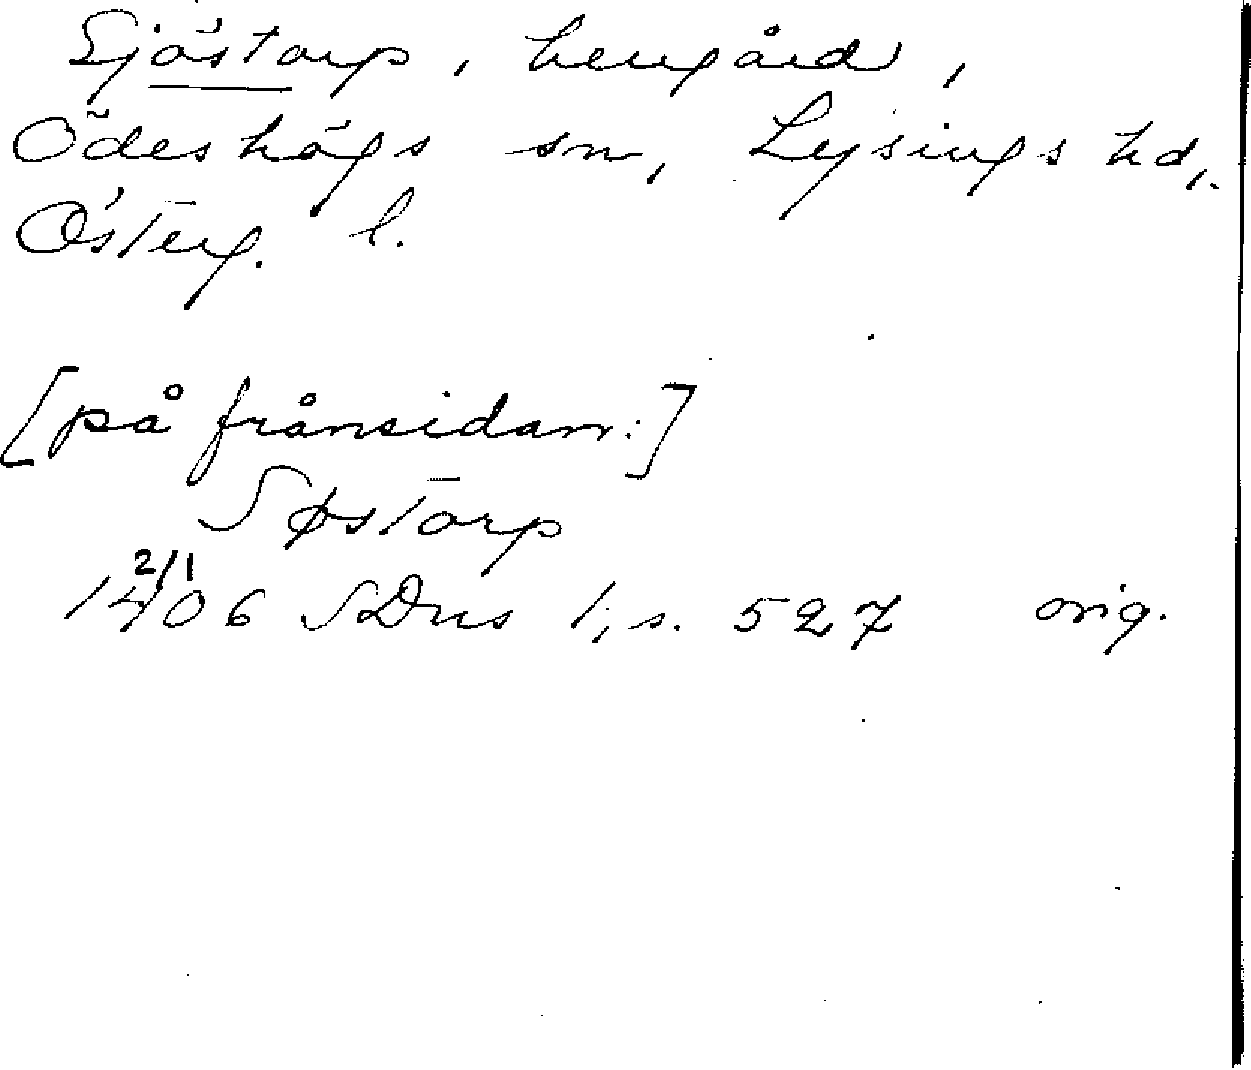 Sjöstorp, herrgård,
Ödeshögs sn, Lysings hd,
Österg. l.
[på frånsidan:]
Søstorp
1406 2/1 SDns 1, s. 527 orig.